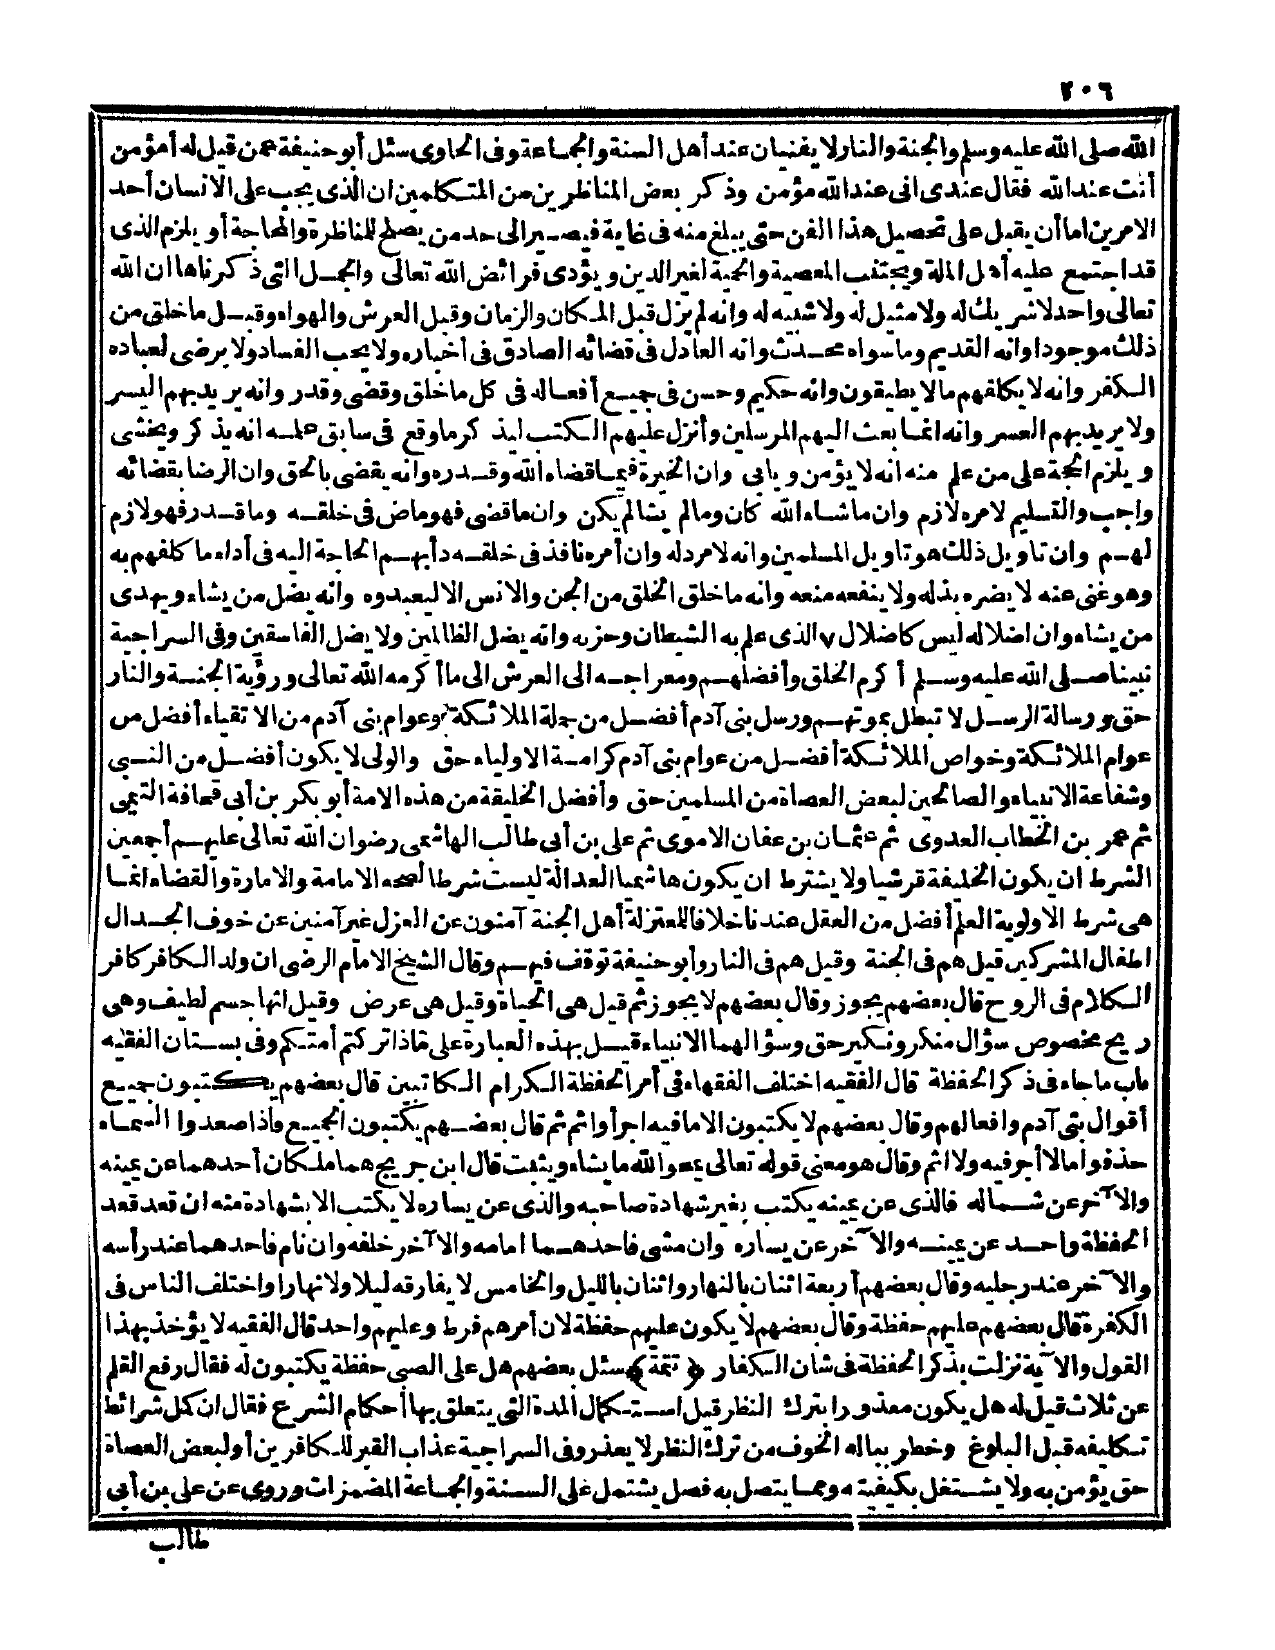 ٢٠٦
الله صلى الله عليه وسلم والجنة والنار لا يفنيان عند أهل السنة والجماعة وفى الحاوى سئل أبو حنيفة عمن قيل له أمؤمن
أنت عند الله فقال عندى انى عند الله مؤمن وذكر بعض المناظرين من المتكلمين ان الذى يجب على الانسان أحد
الامرين اما أن يقبل على تحصيل هذا الفن حتى يبلغ منه فى غاية فيصير الى حد من يصلح للمناظرة والمحاجة أو يلزم الذى
قد اجتمع عليه أهل الملة ويجتنب المعصية والحمية لغير الدين ويؤدى فرائض الله تعالى والجمل التى ذكرناها ان الله
تعالى واحد لا شريك له ولا مثيل له ولا شبيه له وانه لم يزل قبل المكان والزمان وقبل العرش والهواء وقبل ما خلق من
ذلك موجودا وانه القديم وما سواه محدث وانه العادل فى قضائه الصادق فى أخباره ولا يحب الفساد ولا يرضى لعباده
الكفر وانه لا يكلفهم مالا يطيقون وانه حكيم وحسن فى جميع أفعاله فى كل ما خلق وقضى وقدر وانه يريد بهم اليسر
ولا يريد بهم العسر وانه انما بعث اليهم المرسلين وأنزل عليهم الكتب ليذكر ما وقع فى سابق علمه انه يذكر ويخشى
ويلزم الحجة على من علم منه انه لا يؤمن ويابى وان الخيرة فيما قضاء الله وقدره وانه يقضى بالحق وان الرضا بقضائه
واجب والتسليم لامره لازم وان ما شاء الله كان وما لم يشا لم يكن وان ما قضى فهو ماض فى خلقه وما قدر فهو لازم
لهم وان تاويل ذلك هو تاويل المسلمين وانه لا مرد له وان أمره نافذ فى خلقه دأبهم الحاجة اليه فى أداء ما كلفهم به
وهو غنى عنه لا يضره بذله ولا ينفعه منعه وانه ما خلق الخلق من الجن والانس الا ليعبدوه وانه يضل من يشاء ويهدى
من يشاء وان اضلاله ليس كاضلال ٧ الذى علم به الشيطان وحزبه وانه يضل الظالمين ولا يضل الفاسقين وفى السراجية
نبينا صلى الله عليه وسلم أكرم الخلق وأفضلهم ومعراجه الى العرش الى ما أكرمه الله تعالى ورؤية الجنة والنار
حق ورسالة الرسل لا تبطل بموتهم ورسل بنى آدم أفضل من جملة الملائكة وعوام بنى آدم من الاتقياء أفضل من
عوام الملائكة وخواص الملائكة أفضل من عوام بنى آدم كرامة الاولياء حق والولى لا يكون أفضل من النبى
وشفاعة الانبياء والصالحين لبعض العصاة من المسلمين حق وأفضل الخليقة من هذه الامة أبو بكر بن أبى قحافة التيمى
ثم عمر بن الخطاب العدوى ثم عثمان بن عفان الاموى ثم على بن أبى طالب الهاشمى رضوان الله تعالى عليهم أجمعين
الشرط ان يكون الخليفة قرشيا ولا يشترط ان يكون هاشميا العدالة ليست شرطا لصحه الامامة والامارة والقضاء انما
هى شرط الاولوية العلم أفضل من العقل عندنا خلافا للمعتزلة أهل الجنة آمنون عن العزل غير آمنين عن خوف الجدال
اطفال المشركين قيل هم فى الجنة وقيل هم فى النار وأبو حنيفة توقف فيهم وقال الشيخ الامام الرضى ان ولد الكافر كافر
الكلام فى الروح قال بعضهم يجوز وقال بعضهم لا يجوز ثم قيل هى الحياة وقيل هى عرض وقيل انها جسم لطيف وهى
ريح مخصوص سؤال منكر ونكير حق وسؤالهما الانبياء قيل بهذه العبارة على ماذا تركتم أمتكم وفى بستان الفقيه
باب ما جاء فى ذكر الحفظة قال الفقيه اختلف الفقهاء فى أمر الحفظة الكرام الكاتبين قال بعضهم يكتبون جميع
أقوال بنى آدم وافعالهم وقال بعضهم لا يكتبون الا ما فيه اجر أو اثم ثم قال بعضهم يكتبون الجميع فاذا صعدوا السماء
حذفوا مالا أجر فيه ولا اثم وقال هو معنى قوله تعالى يمحو الله ما يشاء ويثبت قال ابن جريج هما ملكان أحدهما عن يمينه
والآخر عن شماله فالذى عن يمينه يكتب بغير شهادة صاحبه والذى عن يساره لا يكتب الا بشهادة منه ان قعد قعد
الحفظة واحد عن يمينه والآخر عن يساره وان مشى فاحدهما امامه والآخر خلفه وان نام فاحدهما عند رأسه
والآخر عند رجليه وقال بعضهم أربعة اثنان بالنهار واثنان بالليل والخامس لا يفارقه ليلا ولا نهارا واختلف الناس فى
الكفرة قال بعضهم عليهم حفظة وقال بعضهم لا يكون عليهم حفظة لان أمرهم فرط وعليهم واحد قال الفقيه لا يؤخذ بهذا
القول والآية نزلت بذكر الحفظة فى شان الكفار ﴿ تتمة ﴾ سئل بعضهم هل على الصبى حفظة يكتبون له فقال رفع القلم
عن ثلاث قيل له هل يكون معذورا بترك النظر قبل استكمال المدة التى يتعلق بها أحكام الشرع فقال ان كمل شرائط
تكليفه قبل البلوغ وخطر بباله الخوف من ترك النظر لا يعذر وفى السراجية عذاب القبر للكافرين أو لبعض العصاة
حق يؤمن به ولا يشتغل بكيفيته ومما يتصل به فصل يشتمل على السنة والجماعة المضمرات وروى عن على بن أبى
طالب